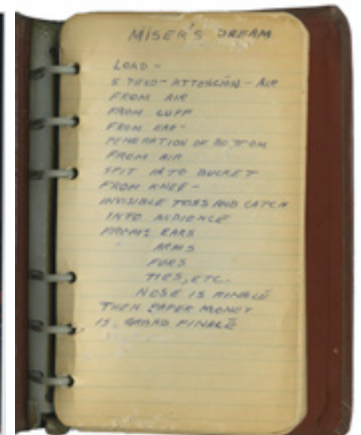 MISER'S DREAM
LOAD -
ATTENTION - AIR
FROM AIR
FROM CUFF
FROM EAR -
PENETRATION OF BOTTOM
FROM AIR
SPIT INTO BUCKET
FROM KNEE -
INVISIBLE TOSS AND CATCH
INTO AUDIENCE
FROM EARS
ARMS
FURS
TIES, ETC.
NOSE IS FINALE
THEN PAPER MONEY
IS GRAND FINALE